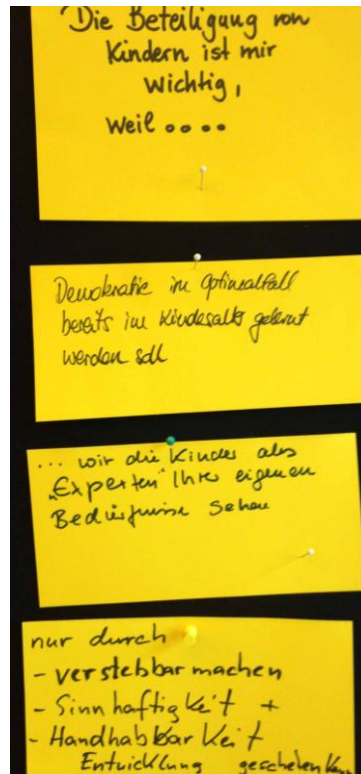 Die Beteiligung von
Kindern ist mir
wichtig,
weil ....
Demokratie im Optimalfall
bereits im Kindesalter gelernt
werden soll
... wir die Kinder als
„Experten" Ihrer eigenen
Bedürfnisse sehen
nur durch
- verstehbar machen
- Sinnhaftigkeit +
- Handhabbarkeit
Entwicklung geschehen kann